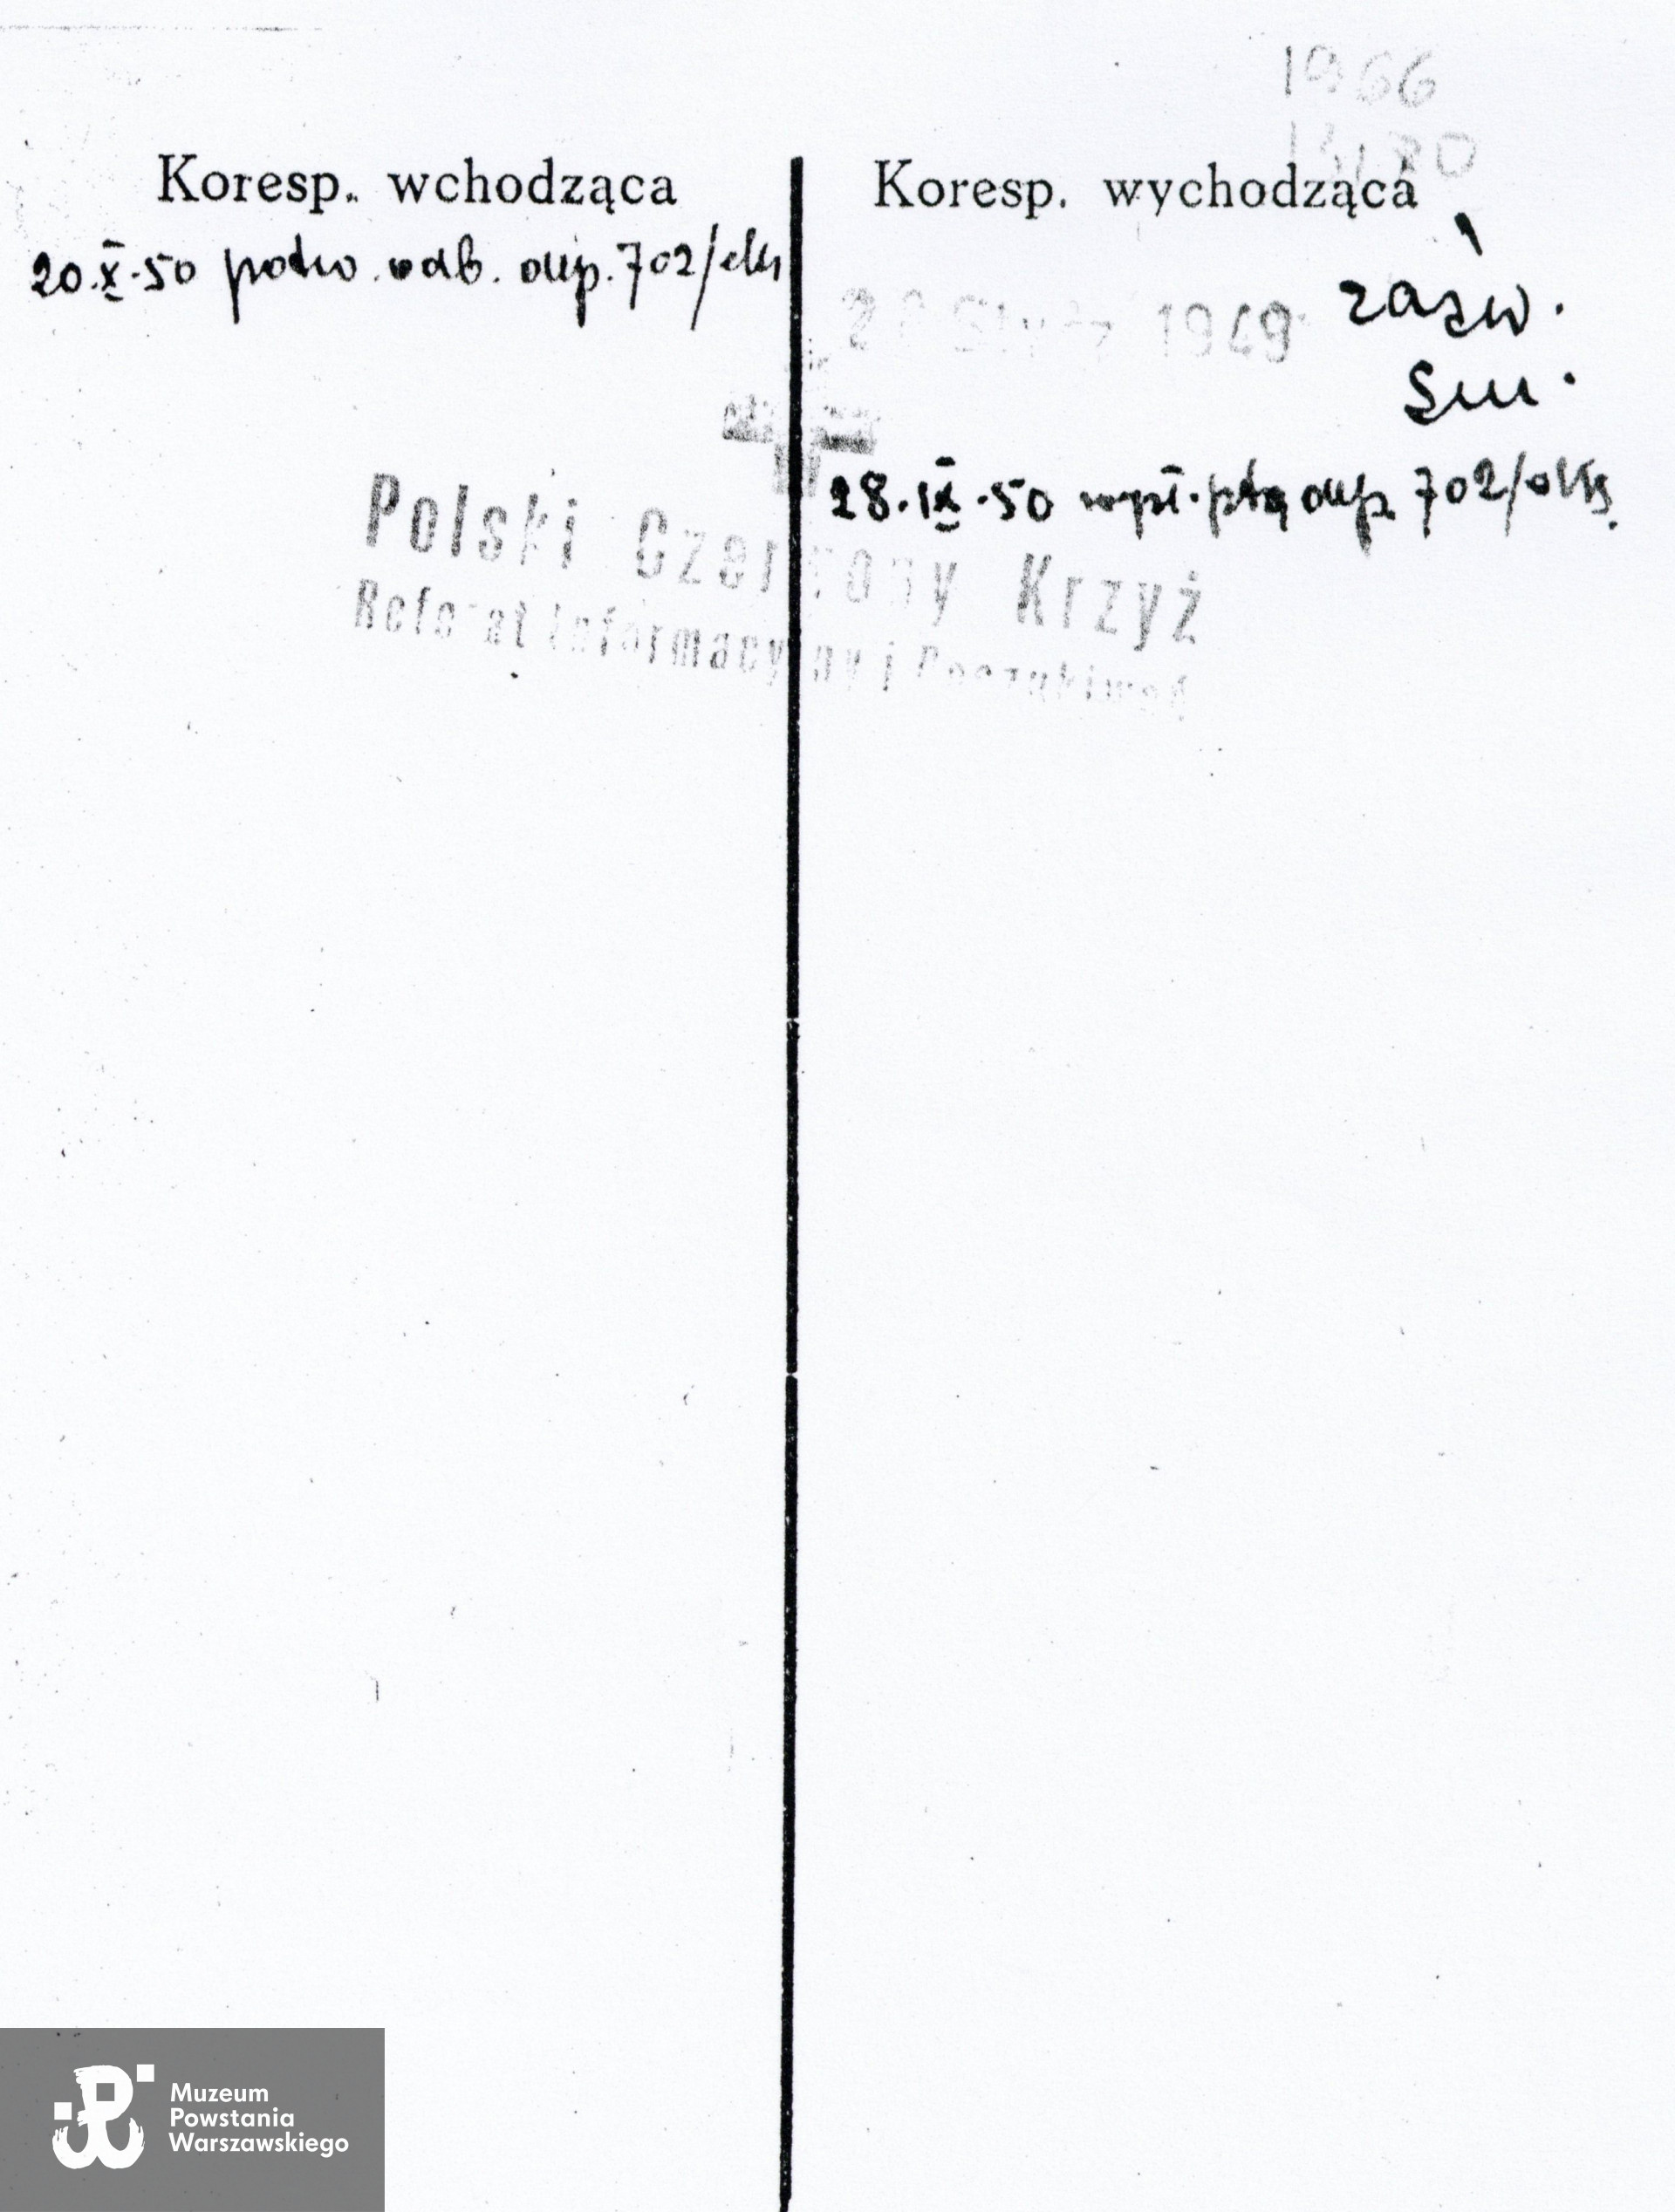 1966
Koresp. wchodząca
20.X.50 potw. odb. dep. 702/
Koresp. wychodząca
Stycz 1949 zaśw.
28.IX.50 dep. 702/
Polski Czerwony Krzyż
Referat Informacyjny i Poszukiwań
Muzeum
Powstania
Warszawskiego